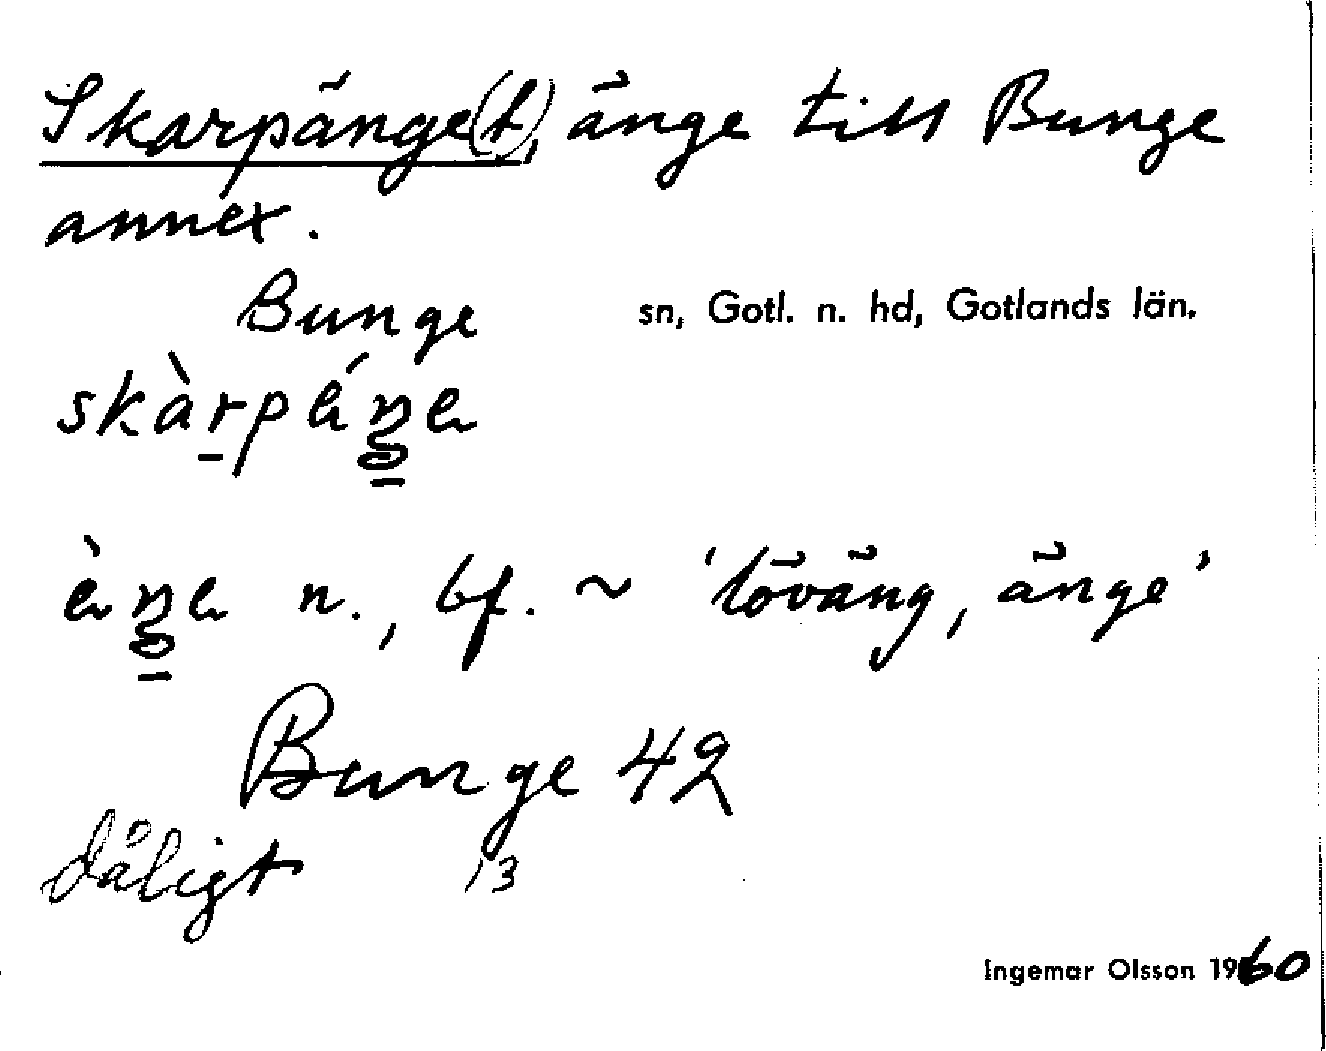 Skarpänge(t), änge till Bunge
annex.
Bunge sn, Gotl. n. hd, Gotlands län.
bf. ~ 'löväng, änge'
Bunge 42
dåligt 13
Ingemar Olsson 1960